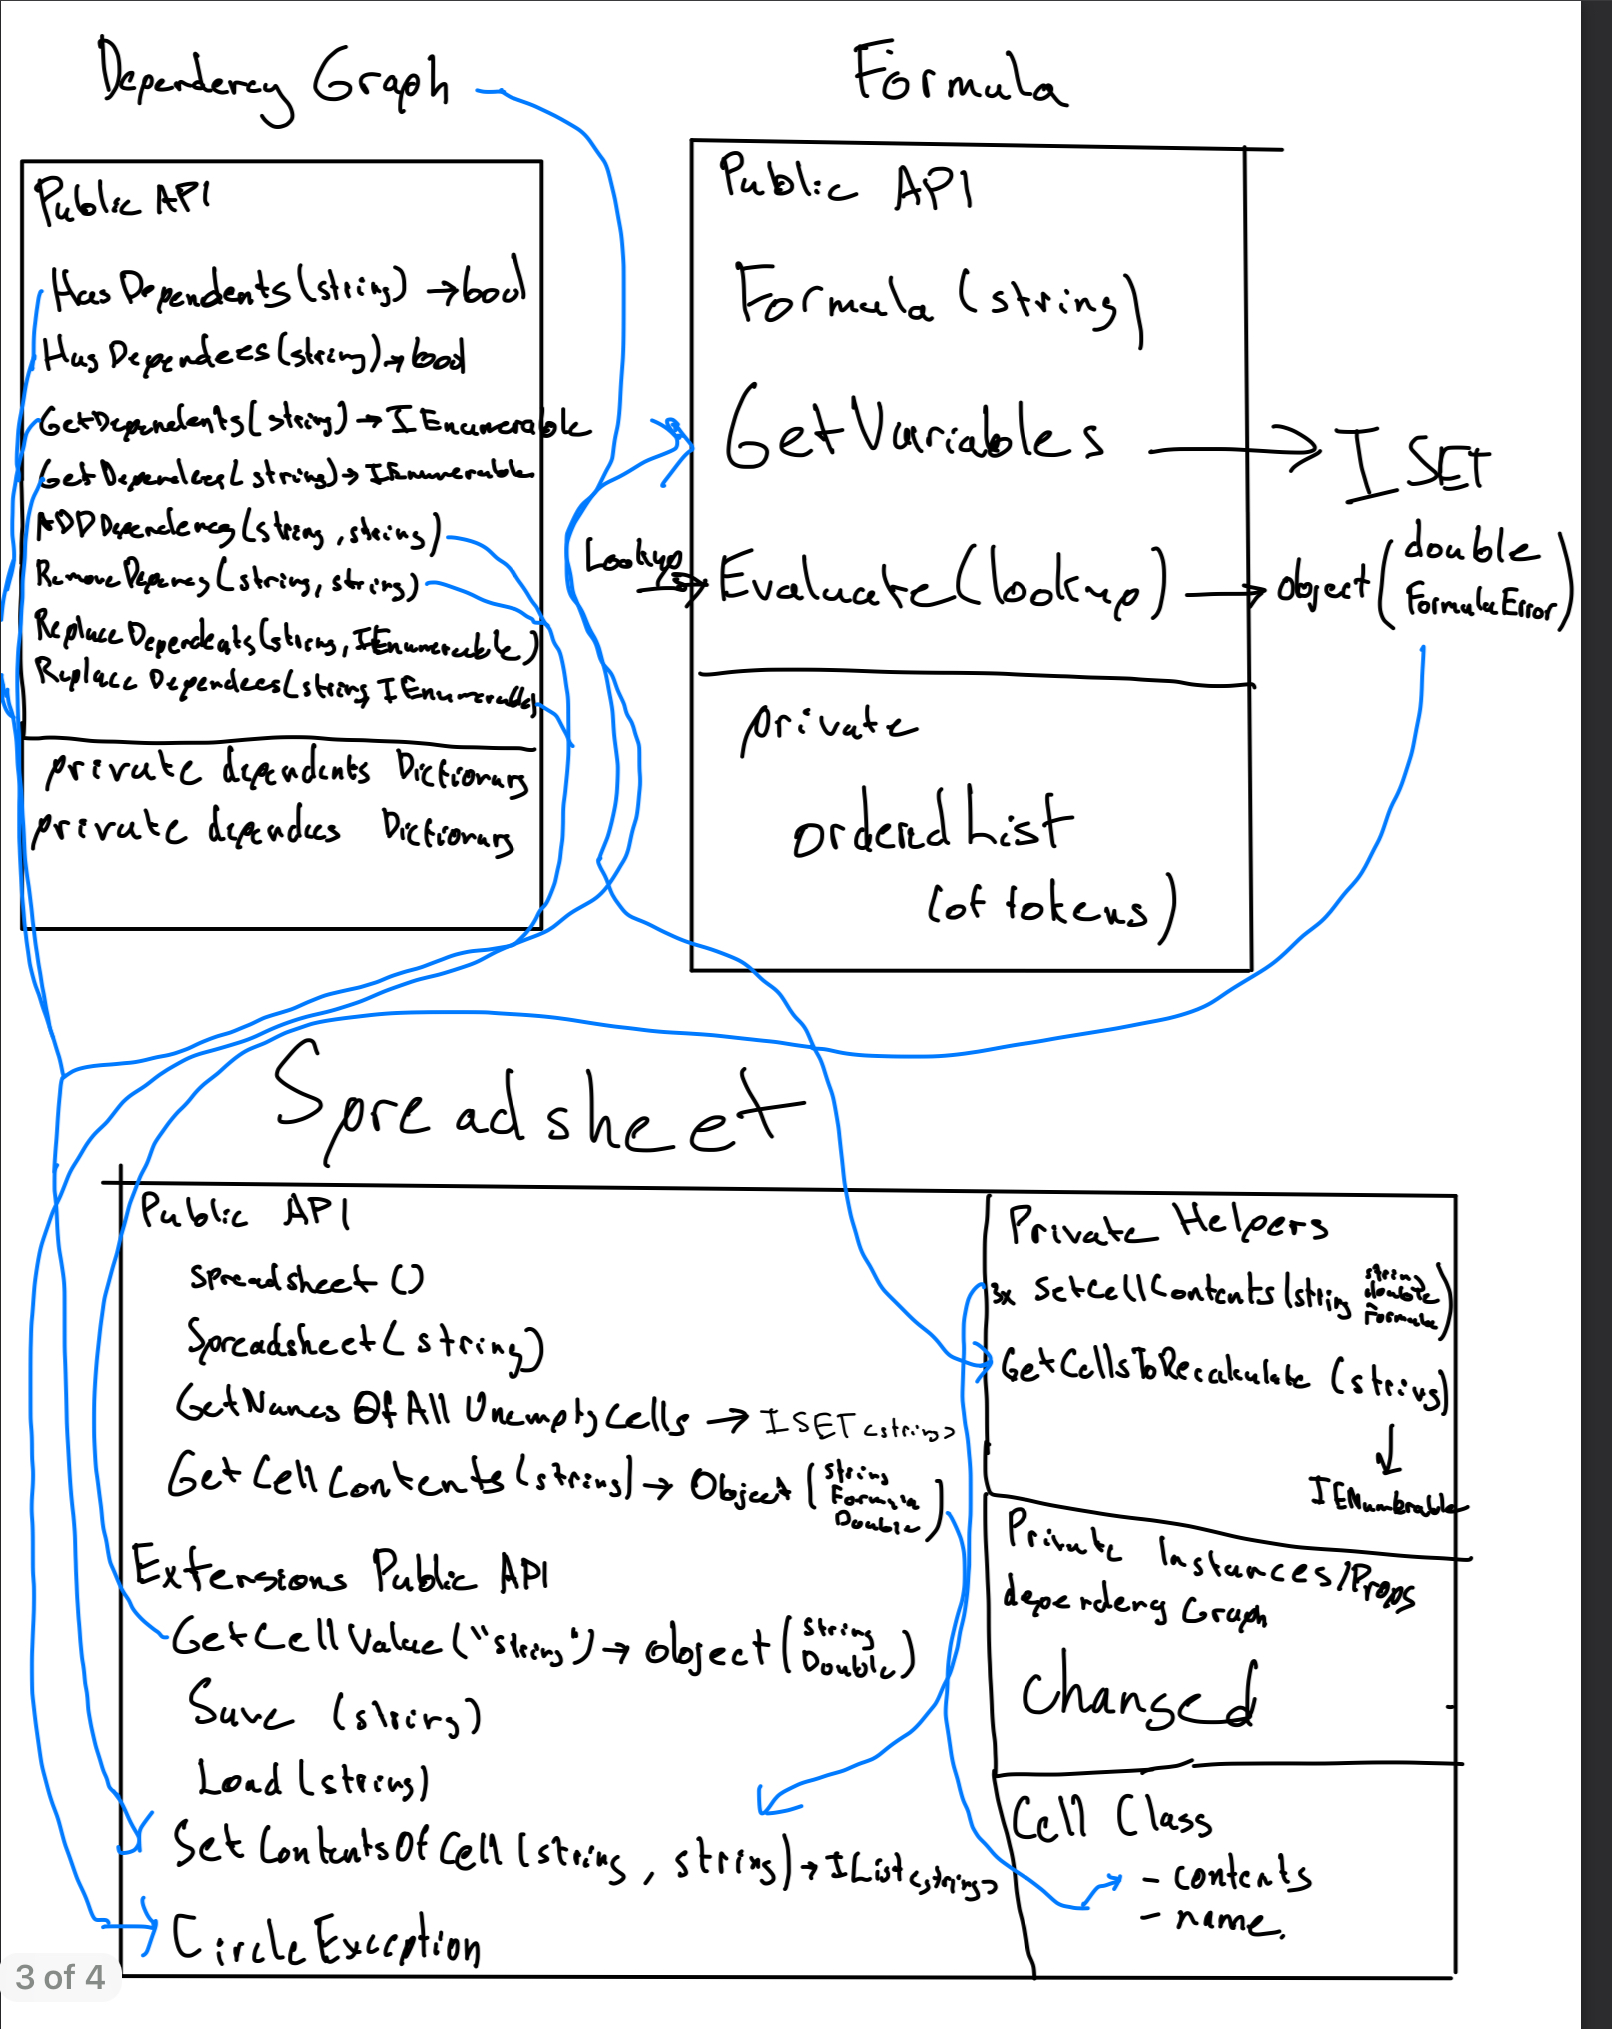 Dependency Graph
Public API
Has Dependents (string) → bool
Has Dependees (string) → bool
Get Dependents (string) → IEnumerable
Get Dependees (string) → IEnumerable
ADD Dependency (string, string)
Remove Depency (string, string)
Replace Dependents (string, IEnumerable)
Replace Dependees (string IEnumerable)
private dependents Dictionary
private dependees Dictionary
Formula
Public API
Formula (string)
GetVariables → ISET
Lookup → Evaluate (lookup) → object (double
FormulaError)
private
ordered List
(of tokens)
Spreadsheet
Public API
Spreadsheet ()
Spreadsheet (string)
GetNames Of All Unempty Cells → ISET <string>
Get Cell Contents (string) → Object (string
Formula
Double)
Extensions Public API
Get Cell Value ("string") → object (string
Double)
Save (string)
Load (string)
Set Contents Of Cell (string, string) → IList <string>
Circle Exception
Private Helpers
3x SetCellContents (string string
double
Formula)
Get Cells To Recalculate (string)
↓
IENumbrable
Private Instances/Props
dependency Graph
Changed
Cell Class
- contents
- name.
3 of 4